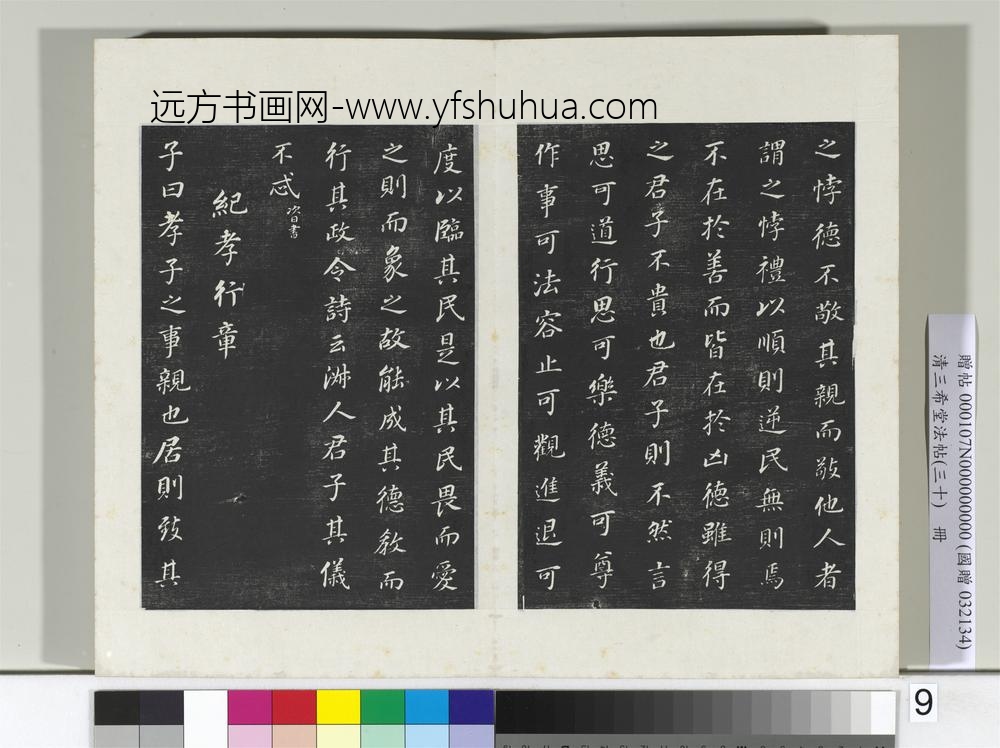 远方书画网-www.yfshuhua.com
之悖德不敬其親而敬他人者
謂之悖禮以順則逆民無則焉
不在於善而皆在於凶德雖得
之君子不貴也君子則不然言
思可道行思可樂德義可尊
作事可法容止可觀進退可
度以臨其民是以其民畏而愛
之則而象之故能成其德教而
行其政令詩云淋人君子其儀
不忒
次日書
紀孝行章
子曰孝子之事親也居則致其
贈帖 000107N000000000 (國贈 032134)
清三希堂法帖(三十) 冊
9